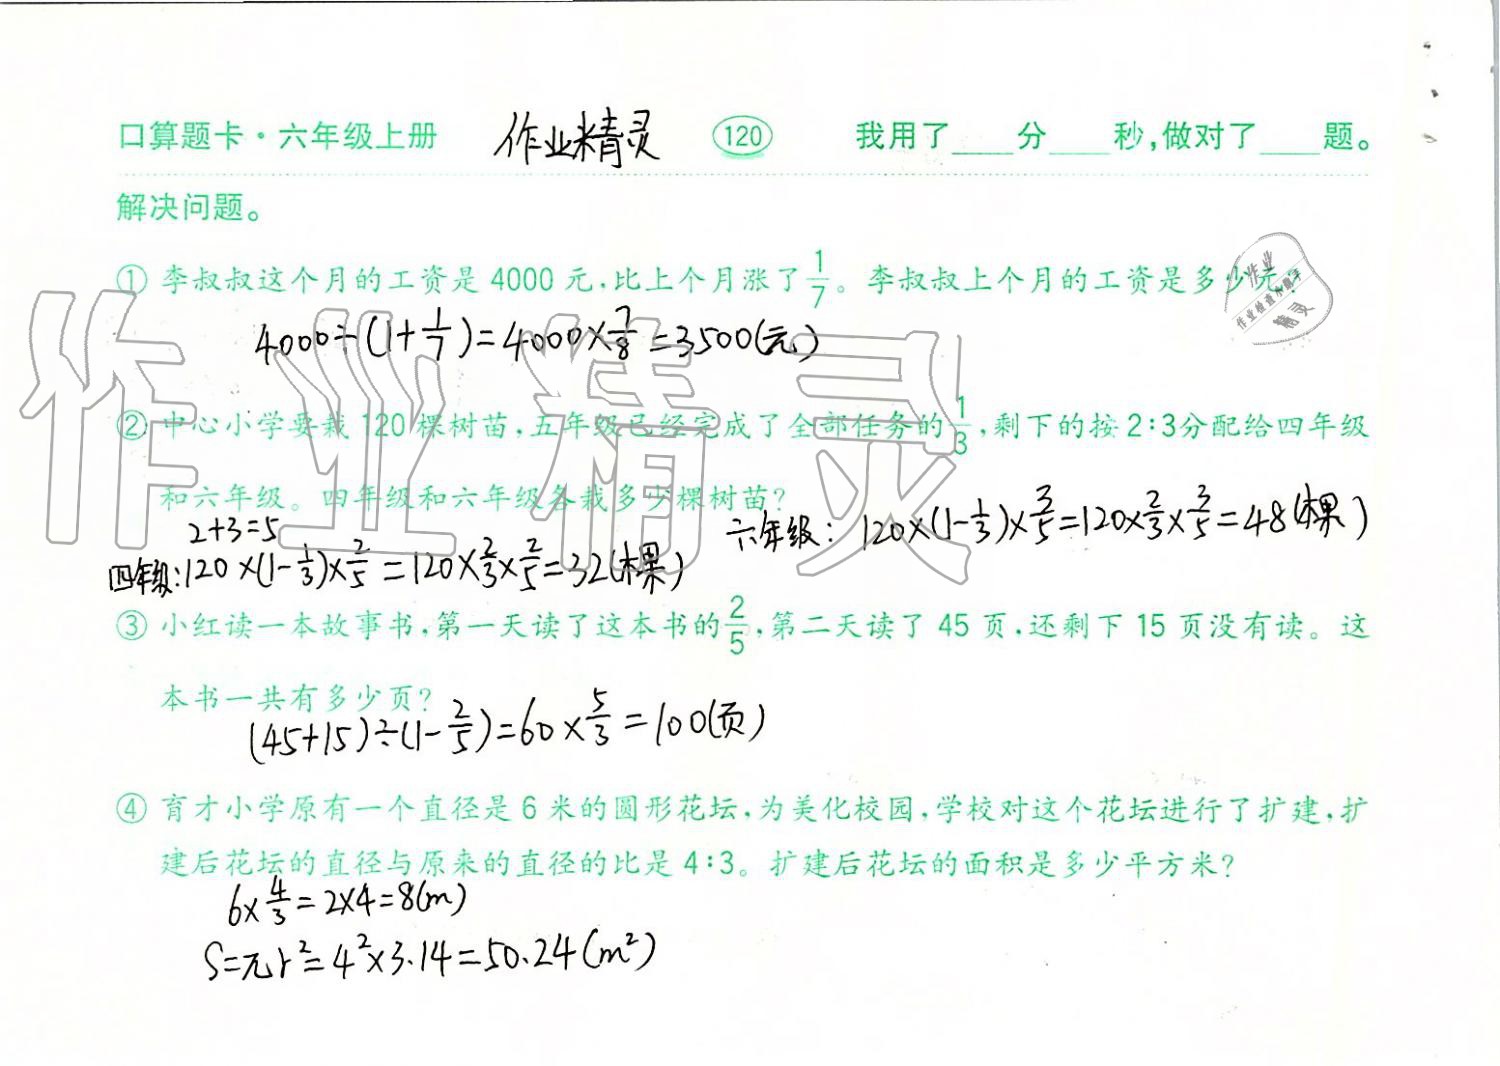 口算题卡·六年级上册 作业精灵 120 我用了____分____秒,做对了____题。
解决问题。
① 李叔叔这个月的工资是 4000 元,比上个月涨了1/7。李叔叔上个月的工资是多少元?
作业
作业检查小助手
精灵
4000÷(1+1/7)=4000×7/8=3500(元)
作业精灵
② 中心小学要栽 120 棵树苗,五年级已经完成了全部任务的1/3,剩下的按 2:3分配给四年级
和六年级。四年级和六年级各栽多少棵树苗?
2+3=5
六年级:120×(1-1/3)×3/5=120×2/3×3/5=48(棵)
四年级:120×(1-1/3)×2/5=120×2/3×2/5=32(棵)
③ 小红读一本故事书,第一天读了这本书的2/5,第二天读了 45 页,还剩下 15 页没有读。这
本书一共有多少页?
(45+15)÷(1-2/5)=60×5/3=100(页)
④ 育才小学原有一个直径是 6 米的圆形花坛,为美化校园,学校对这个花坛进行了扩建,扩
建后花坛的直径与原来的直径的比是 4:3。扩建后花坛的面积是多少平方米?
6×4/3=2×4=8(m)
S=元r²=4²×3.14=50.24(m²)